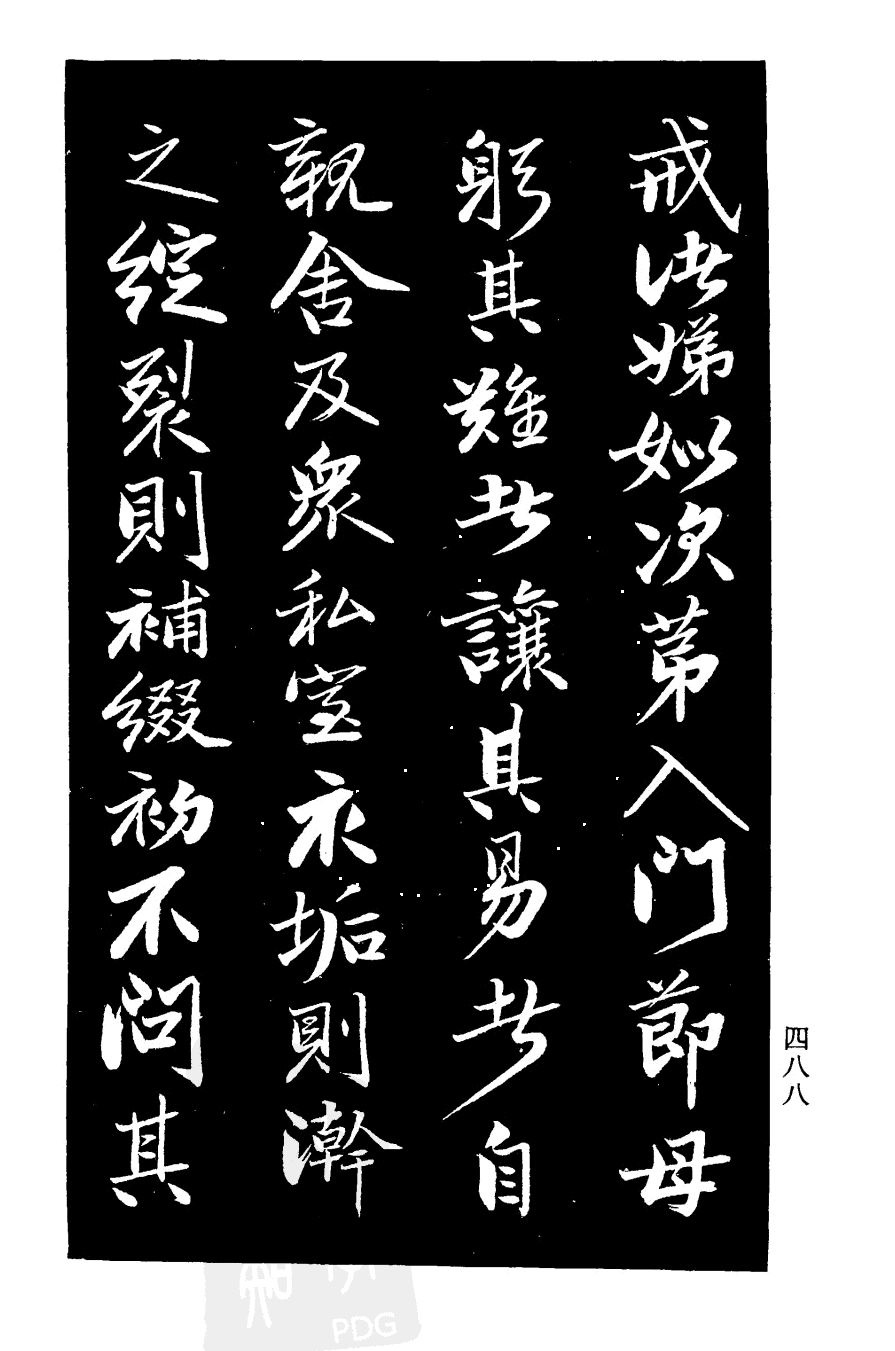 戒諸娣姒次第入門節母
躬其難者讓其易者自
親舍及衆私室衣垢則澣
之綻裂則補綴初不問其
四八八
PDG